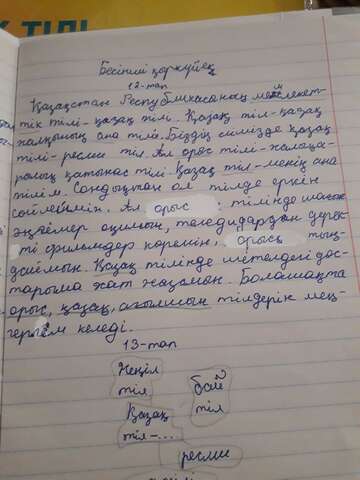 ТІЛІ
Бесінші қыркүйек
12-тап
Қазақстан Республикасының мемлекет-
тік тілі-қазақ тілі. Қазақ тіл-қазақ
халқының ана тілі. Біздің елімізде қазақ
тілі-ресми тіл. Ал орыс тілі-халықа-
ралық қатынас тілі. Қазақ тіл-менің ана
тілім. Сондықтан ол тілде еркін
сөйлеймін. Ал орыс тілінде шағын
әңгімелер оқимын, теледидардан дерек-
ті фильмдер көремін, орысш тың-
даймын. Қазақ тілінде шетелдегі дос-
тарыма хат жазамын. Болашақта
орыс, қазақ, ағылшын тілдерін мең-
гергім келеді.
13-тап
Неңіл
тіл
бай
тіл
Қазақ
тіл-...
ресми